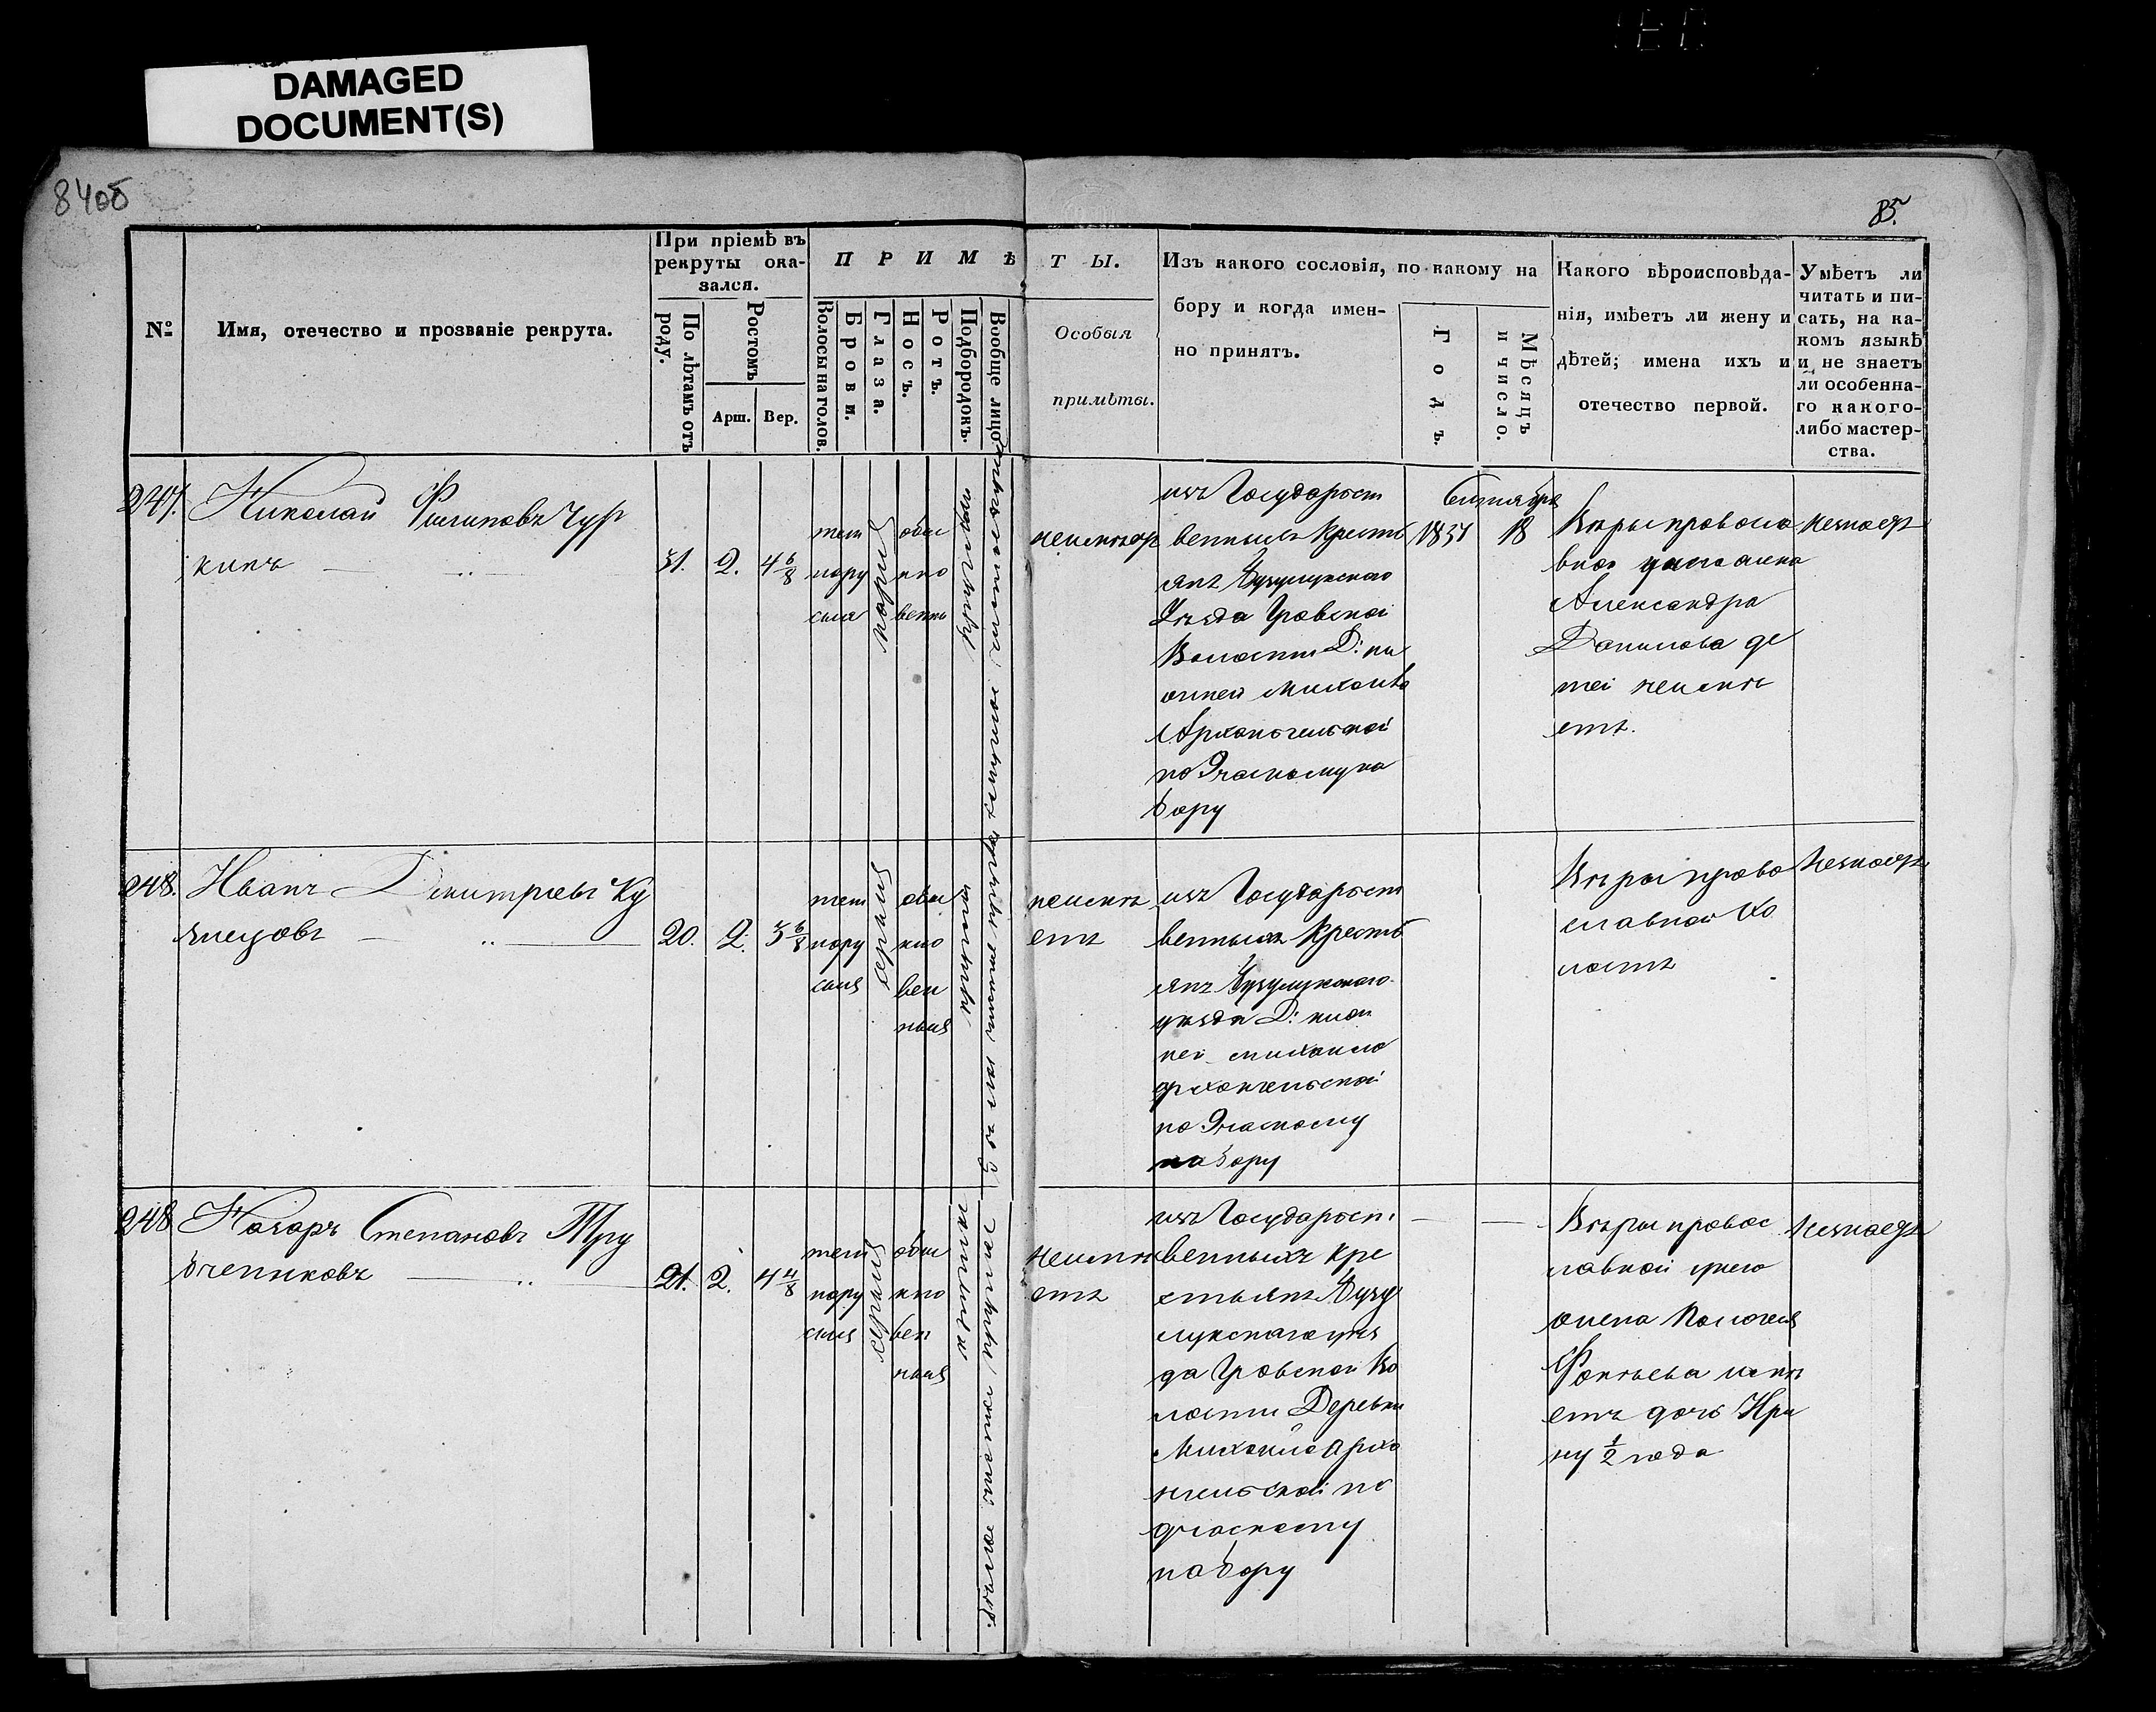 DAMAGED
DOCUMENT(S)
84об
85.
№
Имя, отечество и прозваніе рекрута.
При пріемѣ въ
рекруты ока-
зался.
По лѣтамъ отъ
роду.
Ростомъ
Арш.
Вер.
ПРИМѢ
ТЫ.
Волосы на голов.
Брови.
Глаза.
Носъ.
Ротъ.
Подбородокъ.
Вообще лицо.
Особыя
примѣты.
Изъ какого сословія, по какому на
бору и когда имен-
но принятъ.
Годъ.
Мѣсяцъ
и число.
Какого вѣроисповѣда-
нія, имѣетъ ли жену и
дѣтей; имена ихъ и
отечество первой.
Умѣетъ ли
читать и пи-
сать, на ка-
комъ языкѣ
и не знаетъ
ли особенна-
го какого-
либо мастер-
ства.
247.
Николай Филиповъ Чур
кинъ
31. 2. 4 6/8
темно
русыя
карія
обы
кно
венны
неимѣетъ
изъ Государст
венныхъ Кресть
янъ Бузулукскаго
Уѣзда
Волости Д:
Михайло
Архангельской
по на
бору
Сентября
18
Вѣры правосла
вной
Александра
Данилова де
тей неимѣ
етъ.
незнаетъ
248.
Иванъ Дмитріевъ Ку
знецовъ
20. 2. 3 6/8
темно
русыя
серыя
обы
кно
вен
ныя
неимѣ
етъ
изъ Государст
венныхъ Кресть
янъ Бузулукскаго
уѣзда Д:
михайло
архангельской
по
набору
Вѣры право
славной хо
лостъ
незнаетъ
248
Назаръ Степановъ Тру
бчениковъ
21. 2. 4 4/8
темно
русыя
серыя
обы
кно
вен
ныя
неимѣ
етъ
изъ Государст
венныхъ кре
стьянъ Бузу
лукскаго уѣз
да во
лости Деревни
Михайло арха
нгельской по
набору
Вѣры правос
лавной жена
Фокѣева имѣ
етъ дочь Ири
ну 1/2 года
незнаетъ